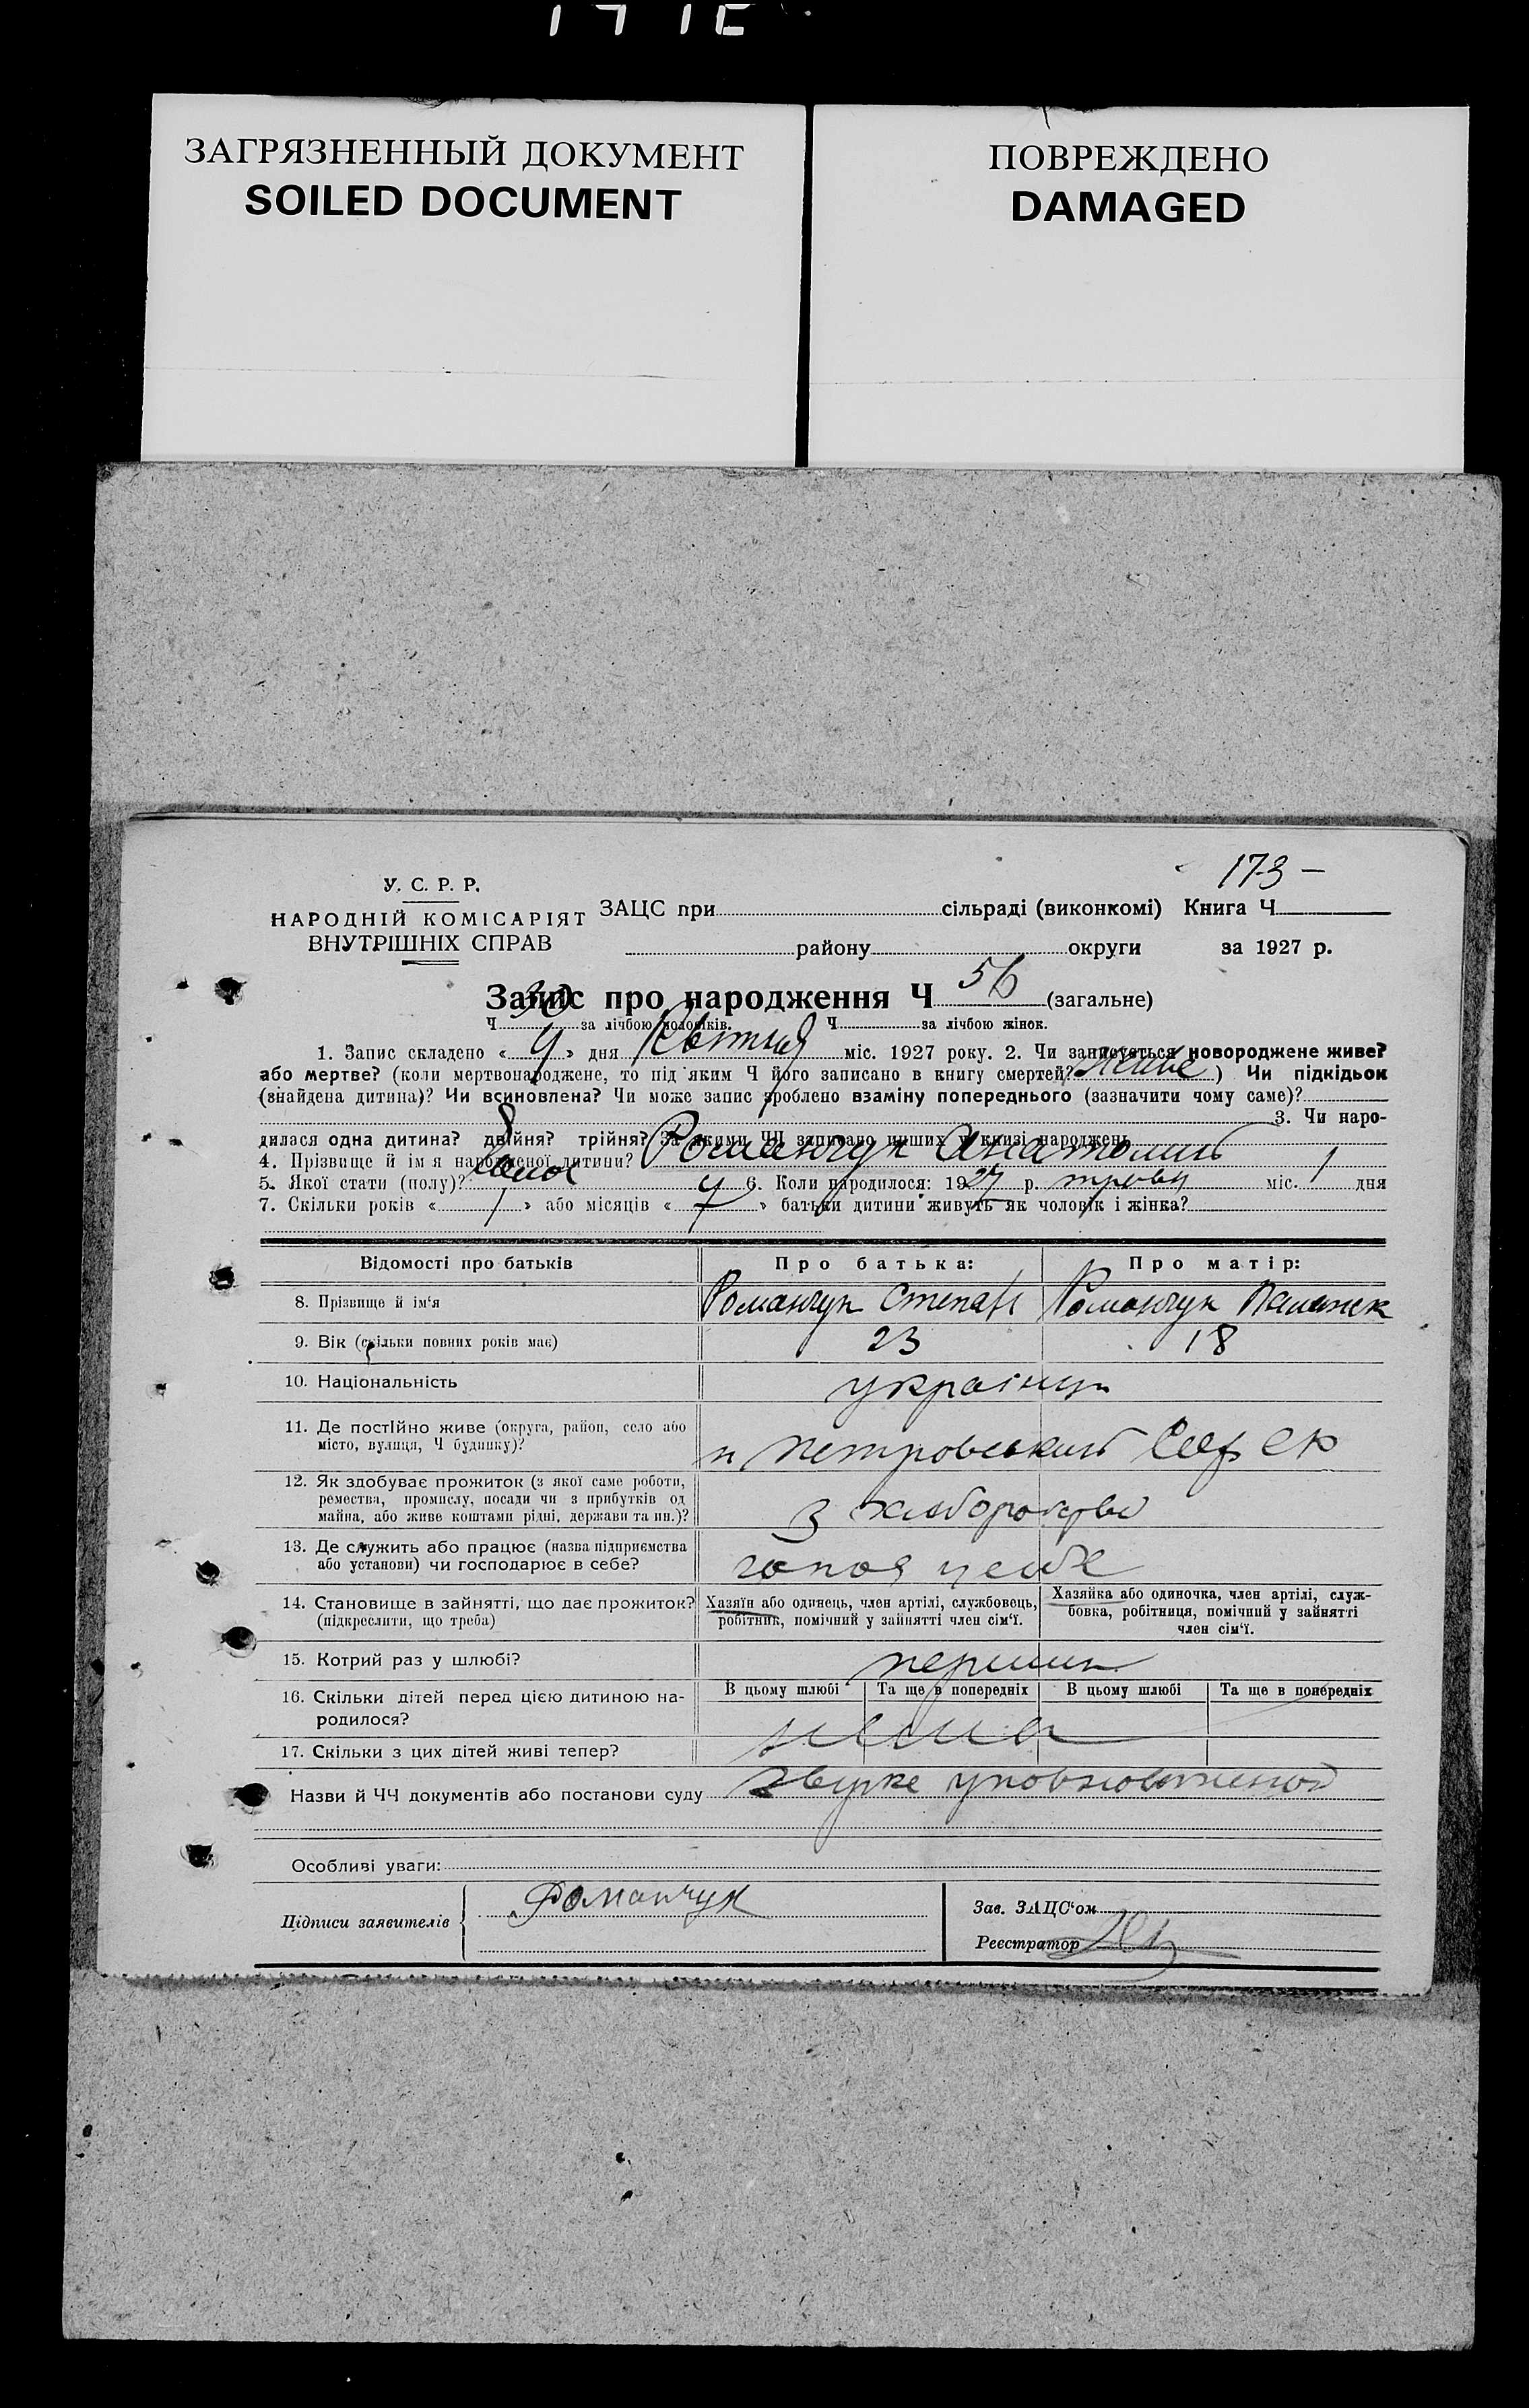 ЗАГРЯЗНЕННЫЙ ДОКУМЕНТ
SOILED DOCUMENT
ПОВРЕЖДЕНО
DAMAGED
173 –
У. С. Р. Р.
НАРОДНІЙ КОМІСАРІЯТ
ВНУТРІШНІХ СПРАВ
ЗАЦС при сільраді (виконкомі) Книга Ч
району округи за 1927 р.
Запис про народження Ч 56 (загальне)
Ч 30 за лічбою чоловіків. Ч за лічбою жінок.
1. Запис складено « 4 » дня Квітня міс. 1927 року. 2. Чи записується новороджене живе?
або мертве? (коли мертвонароджене, то під яким Ч його записано в книгу смертей? живе ) Чи підкідьок
(знайдена дитина)? Чи всиновлена? Чи може запис зроблено взаміну попереднього (зазначити чому саме)?
3. Чи наро-
дилася одна дитина? двійня? трійня? За якими ЧЧ записано инших у книзі народжень
4. Прізвище й імя народженої дитини? Романчук Анатолий
5. Якої стати (полу)? 6. Коли народилося: 1927 р. міс. 1 дня
7. Скільки років « » або місяців « » батьки дитини живуть як чоловік і жінка?
Відомості про батьків
Про батька:
Про матір:
8. Прізвище й ім‘я Романчук Степан Романчук
9. Вік (скільки повних років має) 23 18
10. Національність українци
11. Де постійно живе (округа, район, село або
місто, вулиця, Ч будинку)? Петровський
12. Як здобуває прожиток (з якої саме роботи,
ремества, промислу, посади чи з прибутків од
майна, або живе коштами рідні, держави та ин.)? З
13. Де служить або працює (назва підприємства
або установи) чи господарює в себе?
14. Становище в зайнятті, що дає прожиток?
(підкреслити, що треба)
Хазяїн або одинець, член артілі, службовець,
робітник, помічний у зайнятті член сім‘ї.
Хазяйка або одиночка, член артілі, служ-
бовка, робітниця, помічний у зайнятті
член сім‘ї.
15. Котрий раз у шлюбі?
16. Скільки дітей перед цією дитиною на-
родилося?
В цьому шлюбі Та ще в попередніх В цьому шлюбі Та ще в попередніх
нема
17. Скільки з цих дітей живі тепер?
Назви й ЧЧ документів або постанови суду
Особливі уваги:
Підписи заявителів Романчук
Зав. ЗАЦС‘ом
Реєстратор